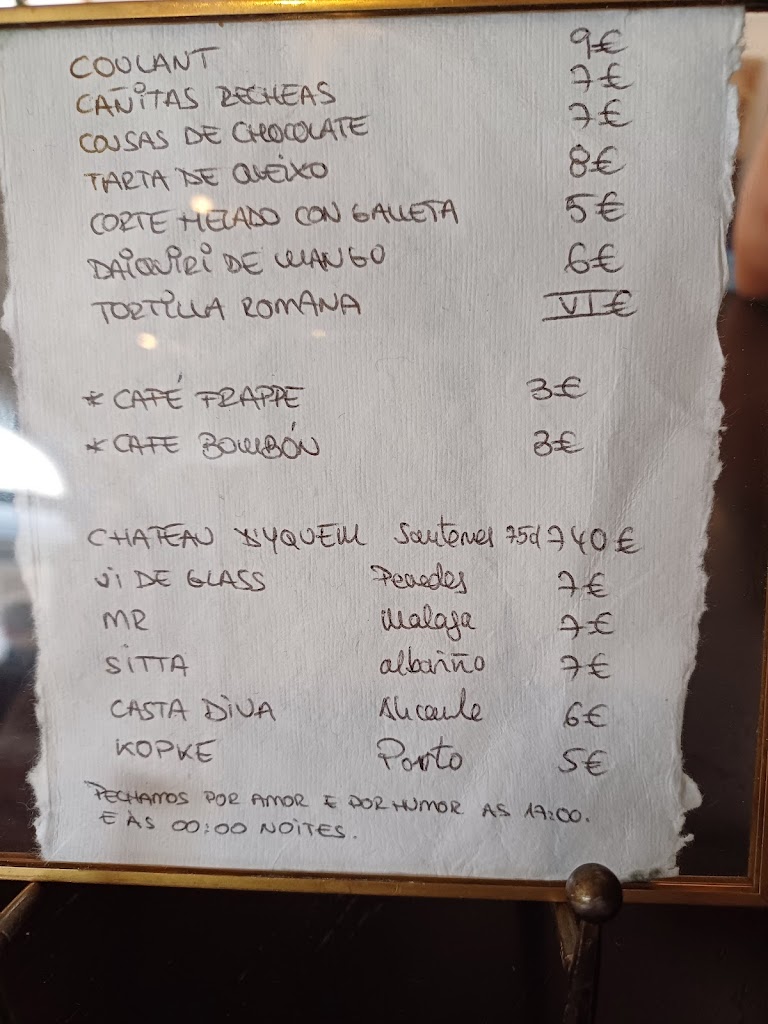 COULANT 9€
CAÑITAS RECHEAS 7€
COUSAS DE CHOCOLATE 7€
TARTA DE QUEIXO 8€
CORTE HELADO CON GALLETA 5€
DAIQUIRI DE MANGO 6€
TORTILLA ROMANA VI€
* CAFÉ FRAPPE 3€
* CAFE BOMBÓN 3€
CHATEAU D'YQUEM Sauternes 75cl 740€
VI DE GLASS Penedes 7€
MR Malaga 7€
SITTA albariño 7€
CASTA DIVA Alicante 6€
KOPKE Porto 5€
PECHAMOS POR AMOR E POR HUMOR AS 17:00.
E ÀS 00:00 NOITES.